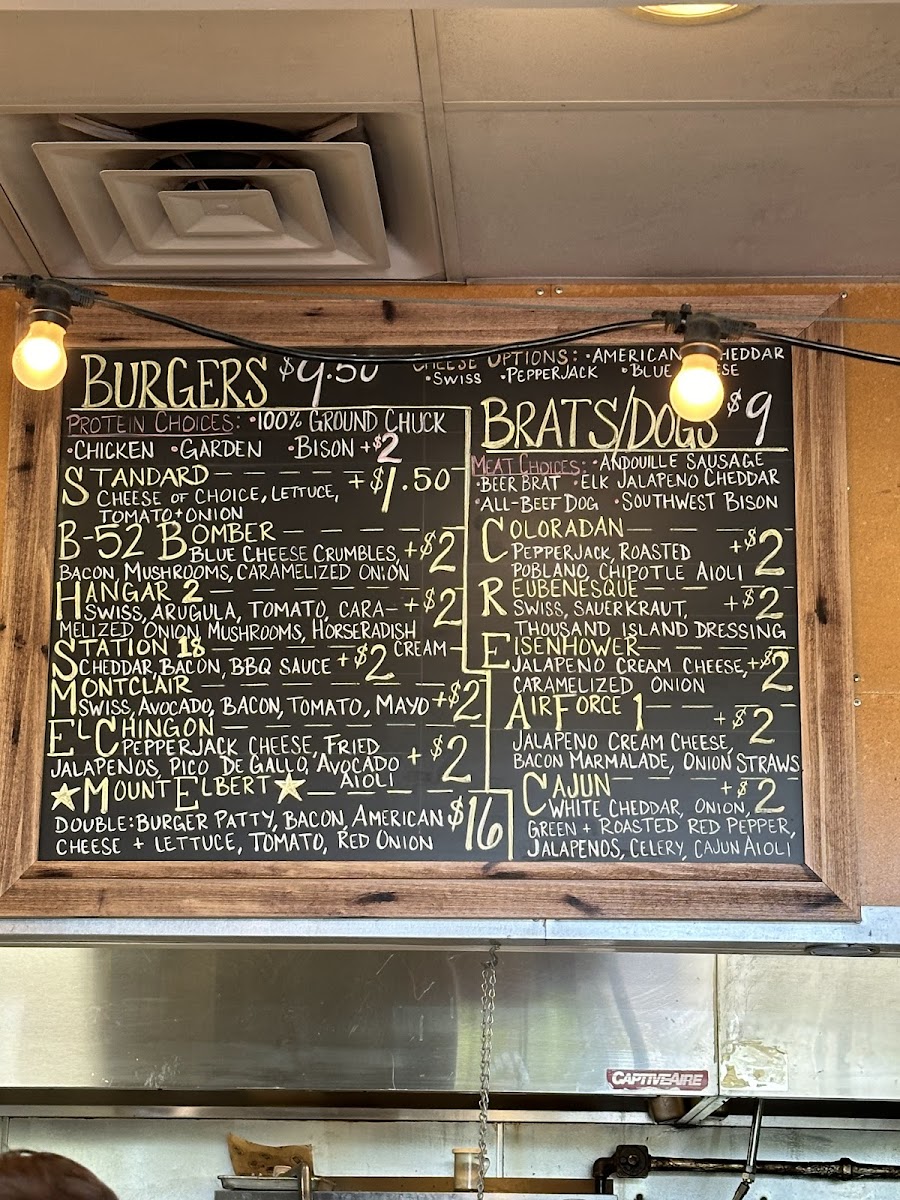 BURGERS $9.50
PROTEIN CHOICES: •100% GROUND CHUCK
•CHICKEN •GARDEN •BISON +$2
STANDARD +$1.50
CHEESE OF CHOICE, LETTUCE,
TOMATO + ONION
B-52 BOMBER
BLUE CHEESE CRUMBLES, +$2
BACON, MUSHROOMS, CARAMELIZED ONION
HANGAR 2
SWISS, ARUGULA, TOMATO, CARA- +$2
MELIZED ONION, MUSHROOMS, HORSERADISH
STATION 18 CREAM
CHEDDAR, BACON, BBQ SAUCE +$2
MONTCLAIR
SWISS, AVOCADO, BACON, TOMATO, MAYO +$2
EL CHINGON
PEPPERJACK CHEESE, FRIED
JALAPENOS, PICO DE GALLO, AVOCADO + $2
AIOLI
MOUNT ELBERT
DOUBLE: BURGER PATTY, BACON, AMERICAN $16
CHEESE + LETTUCE, TOMATO, RED ONION
CHEESE OPTIONS: •AMERICAN CHEDDAR
•SWISS •PEPPERJACK •BLUE CHEESE
BRATS/DOGS $9
MEAT CHOICES: •ANDOUILLE SAUSAGE
•BEER BRAT •ELK JALAPENO CHEDDAR
•ALL-BEEF DOG •SOUTHWEST BISON
COLORADAN
PEPPERJACK, ROASTED +$2
POBLANO, CHIPOTLE AIOLI
REUBENESQUE
SWISS, SAUERKRAUT, +$2
THOUSAND ISLAND DRESSING
EISENHOWER
JALAPENO CREAM CHEESE, +$2
CARAMELIZED ONION
AIR FORCE 1 +$2
JALAPENO CREAM CHEESE,
BACON MARMALADE, ONION STRAWS
CAJUN +$2
WHITE CHEDDAR, ONION,
GREEN + ROASTED RED PEPPER,
JALAPENOS, CELERY, CAJUN AIOLI
CAPTIVEAIRE